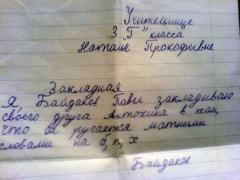 Учительнице
3 "Г" класса
Наталье Прокофьевне
Закладная
Я, Байдаков Павел закладываю
своего друга Антохина в том,
что он ругается матными
словами на б, п, х.
Байдаков